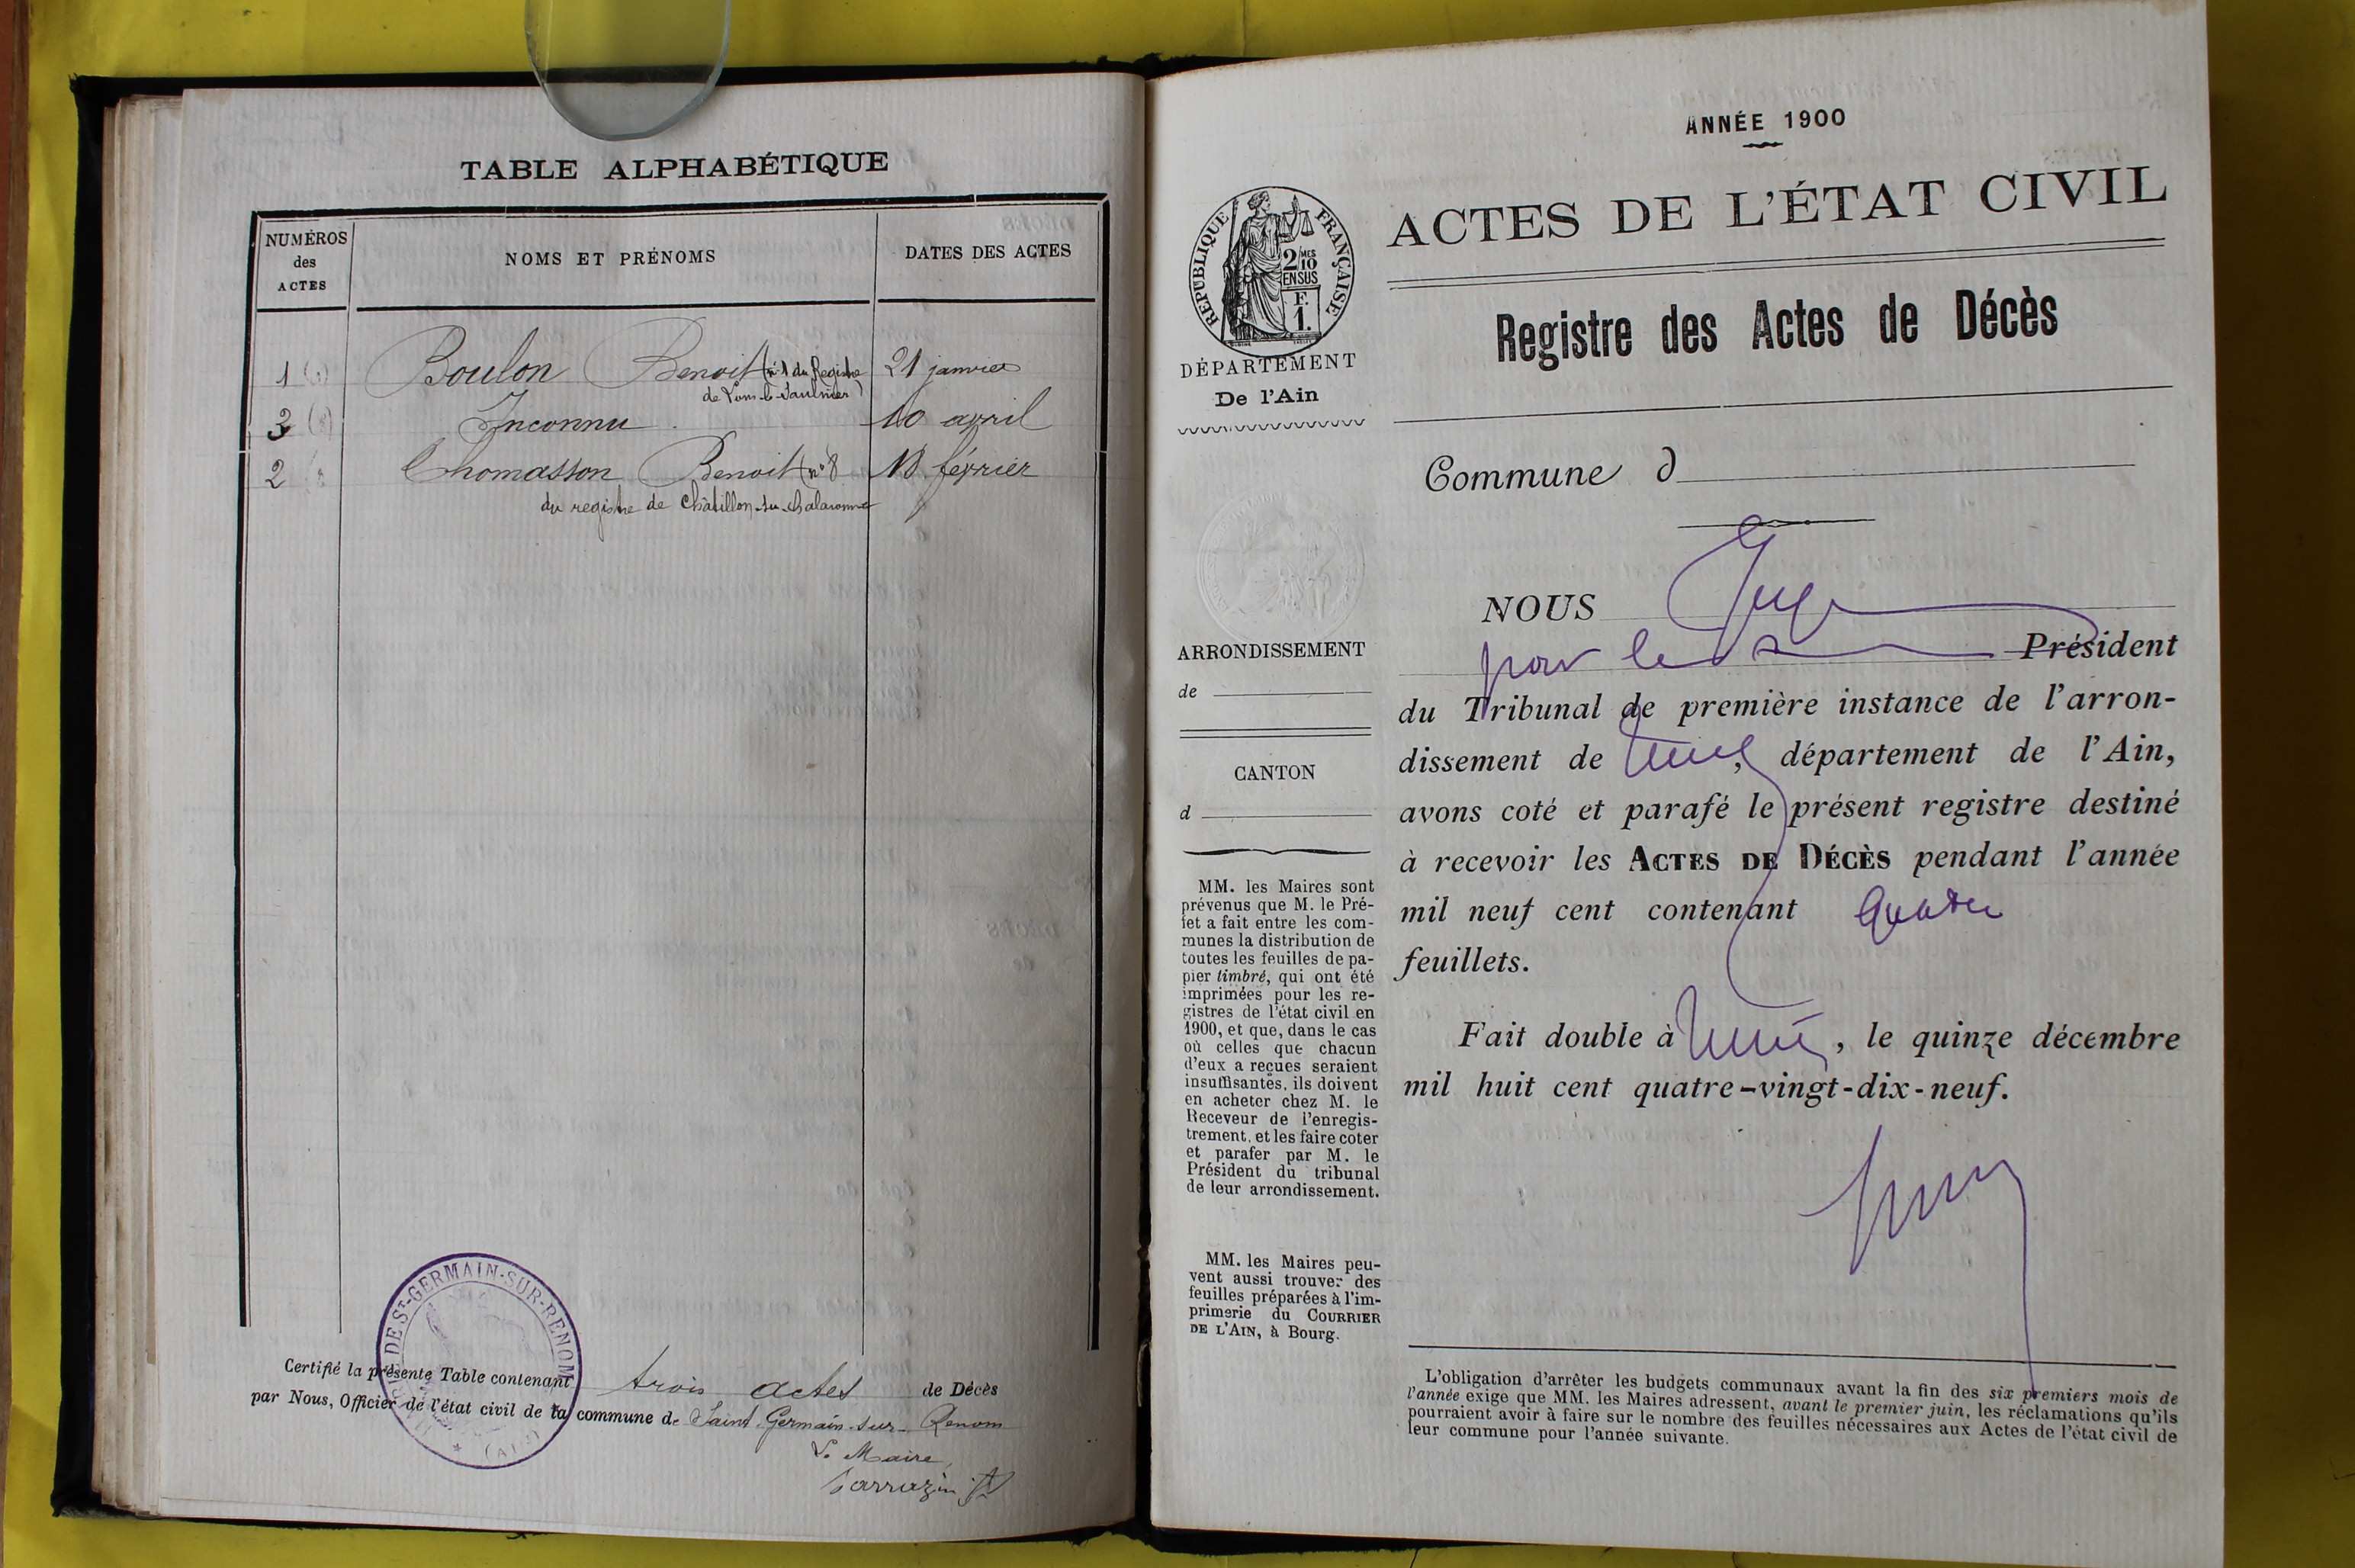 TABLE ALPHABÉTIQUE
NUMÉROS
des
ACTES
NOMS ET PRÉNOMS
DATES DES ACTES
1 Boulon Benoit (n° 1 du Registre 21 janvier
de Lons-le-Saulnier)
3 Inconnu 10 avril
2 Thomasson Benoit (n° 8 13 février
du registre de Châtillon-sur-Chalaronne
Certifié la présente Table contenant trois actes de Décès
par Nous, Officier de l'état civil de la commune de Saint-Germain-sur-Renom
Le Maire,
Sarrazin
DE ST-GERMAIN-SUR-RENOM
(AIN)
ANNÉE 1900
ACTES DE L'ÉTAT CIVIL
Registre des Actes de Décès
RÉPUBLIQUE FRANÇAISE
2 MES
10
EN SUS
F.
1.
DÉPARTEMENT
De l'Ain
ARRONDISSEMENT
de
CANTON
d
MM. les Maires sont
prévenus que M. le Pré-
fet a fait entre les com-
munes la distribution de
toutes les feuilles de pa-
pier timbré, qui ont été
imprimées pour les re-
gistres de l'état civil en
1900, et que, dans le cas
où celles que chacun
d'eux a reçues seraient
insuffisantes, ils doivent
en acheter chez M. le
Receveur de l'enregis-
trement, et les faire coter
et parafer par M. le
Président du tribunal
de leur arrondissement.
MM. les Maires peu-
vent aussi trouver des
feuilles préparées à l'im-
primerie du COURRIER
DE L'AIN, à Bourg.
Commune d
NOUS Juge
pour le Président
du Tribunal de première instance de l'arron-
dissement de , département de l'Ain,
avons coté et parafé le présent registre destiné
à recevoir les ACTES DE DÉCÈS pendant l'année
mil neuf cent contenant quatre
feuillets.
Fait double à , le quinze décembre
mil huit cent quatre-vingt-dix-neuf.
L'obligation d'arrêter les budgets communaux avant la fin des six premiers mois de
l'année exige que MM. les Maires adressent, avant le premier juin, les réclamations qu'ils
pourraient avoir à faire sur le nombre des feuilles nécessaires aux Actes de l'état civil de
leur commune pour l'année suivante.